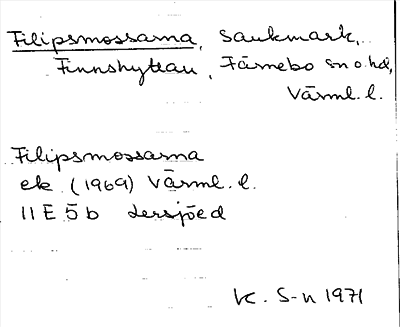 Filipsmossarna, sankmark,
Finnshyttan, Färnebo sn o. hd,
Värml. l.
Filipsmossarna
ek. (1969) Värml. l.
11 E 5 b
K. S-n 1971